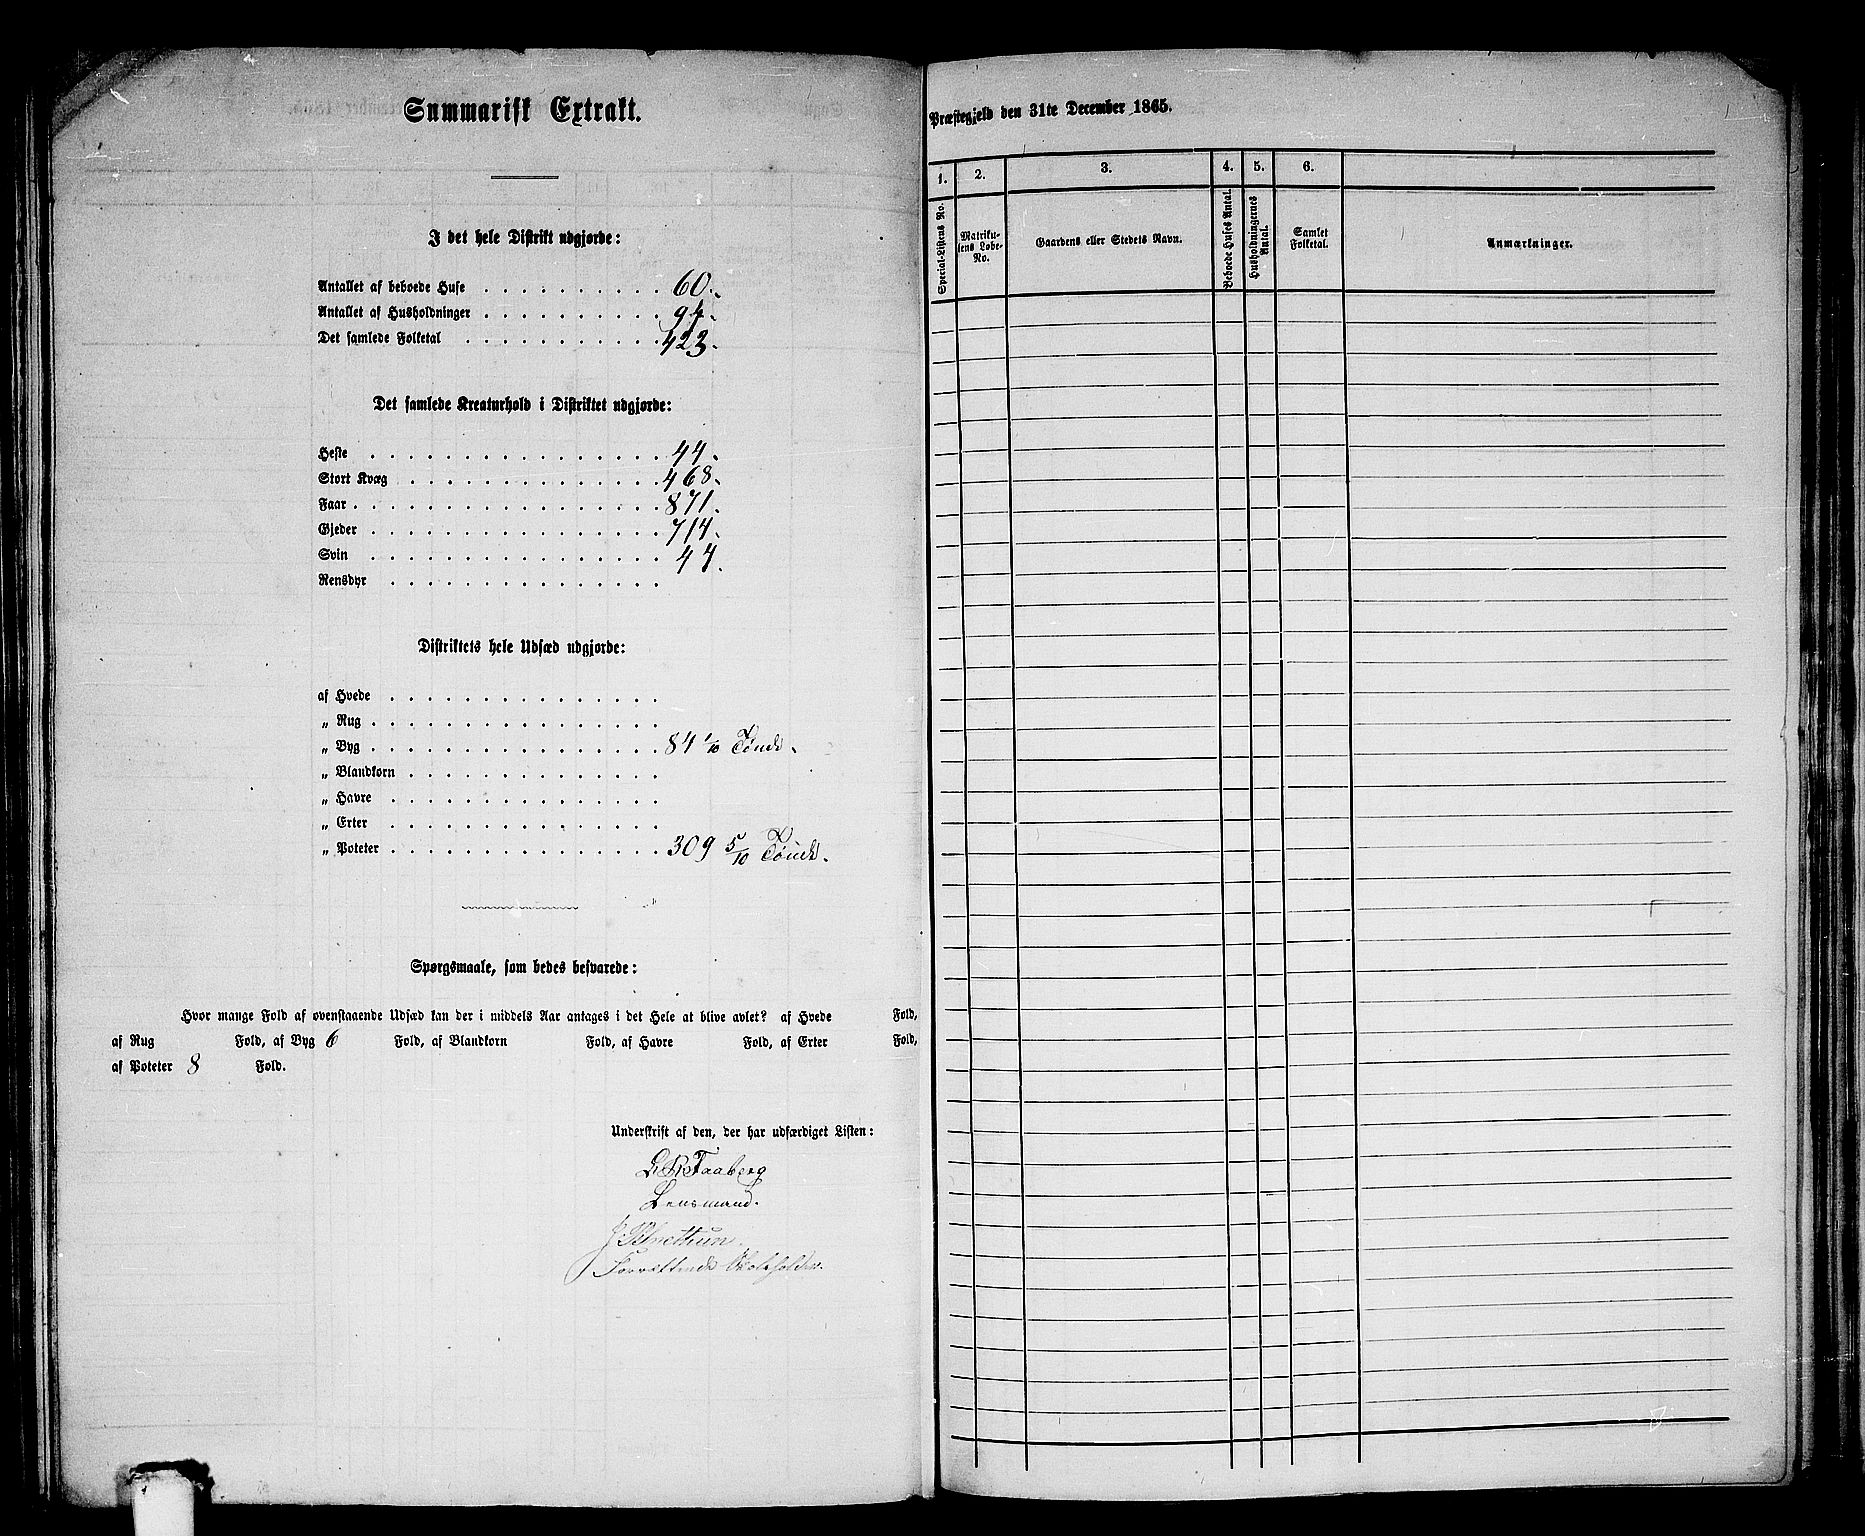 Summarisk Extrakt.
I det hele Distrikt udgjorde:
Antallet af beboede Huse . . . . . . . . . . 60.
Antallet af Husholdninger . . . . . . . . . . 94.
Det samlede Folketal . . . . . . . . . . . 423.
Det samlede Kreaturhold i Distriktet udgjorde:
Heste . . . . . . . . . . . . . . . . 44.
Stort Kvæg . . . . . . . . . . . . . . 468.
Faar . . . . . . . . . . . . . . . . . 871.
Gjeder . . . . . . . . . . . . . . . . 714.
Svin . . . . . . . . . . . . . . . . 44.
Rensdyr . . . . . . . . . . . . . . .
Distriktets hele Udsæd udgjorde:
af Hvede . . . . . . . . . . . . . . .
„ Rug . . . . . . . . . . . . . . . .
„ Byg . . . . . . . . . . . . . . . . 84 1/10 Tønde.
„ Blandkorn . . . . . . . . . . . . . .
„ Havre . . . . . . . . . . . . . . .
„ Erter . . . . . . . . . . . . . . .
„ Poteter . . . . . . . . . . . . . . . 309 5/10 Tønde.
Spørgsmaale, som bedes besvarede:
Hvor mange Fold af ovenstaaende Udsæd kan der i middels Aar antages i det Hele at blive avlet? af Hvede Fold,
af Rug Fold, af Byg 6 Fold, af Blandkorn Fold, af Havre Fold, af Erter Fold,
af Poteter 8 Fold.
Underskrift af den, der har udfærdiget Listen:
Faaberg
Lensmand.
Forrettende Skoleholder.
Præstegjeld den 31te December 1865.
1. 2. 3. 4. 5. 6.
Special-Listens No.
Matriku-
lens Løbe-
No.
Gaardens eller Stedets Navn.
Beboede Huses Antal.
Husholdningernes
Antal.
Samlet
Folketal.
Anmærkninger.